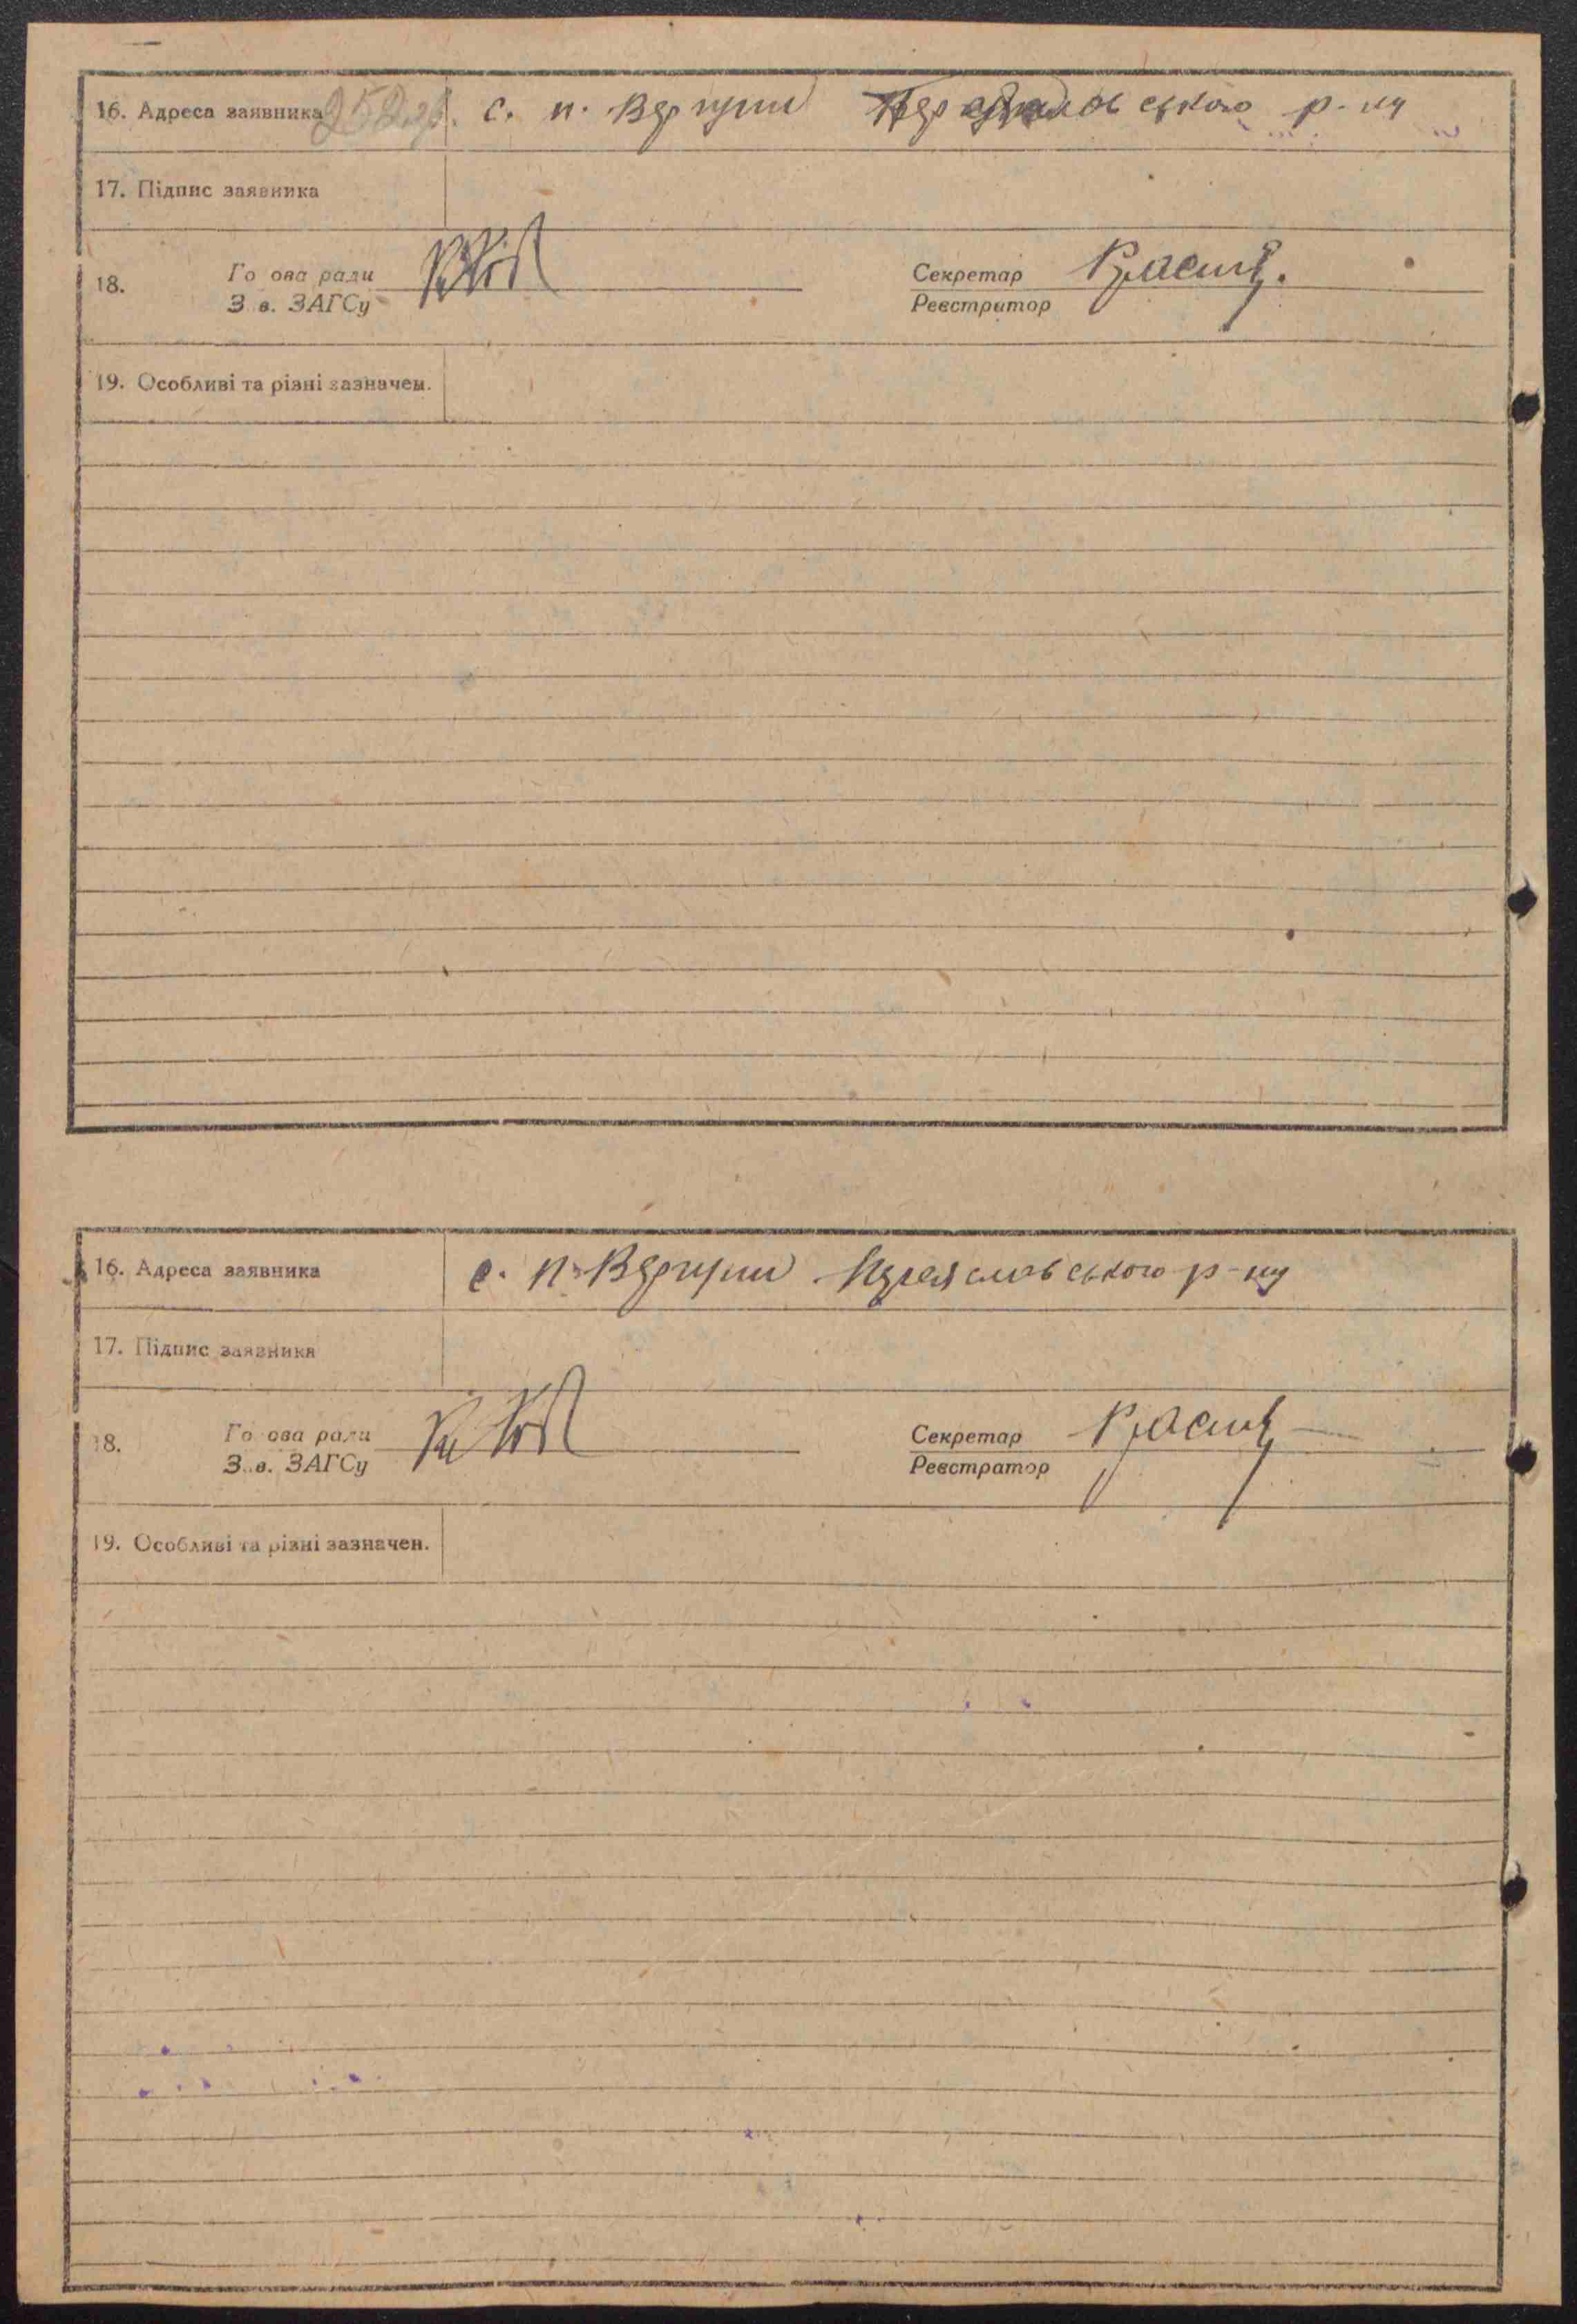 16. Адреса заявника с. п. Вергуни Переяславського р-ну
17. Підпис заявника
18. Го ова ради Секретар
З в. ЗАГСу Реєстратор
19. Особливі та різні зазначен.
16. Адреса заявника с. п. Вергуни Переяславського р-ну
17. Підпис заявника
18. Го ова ради Секретар
З в. ЗАГСу Реєстратор
19. Особливі та різні зазначен.